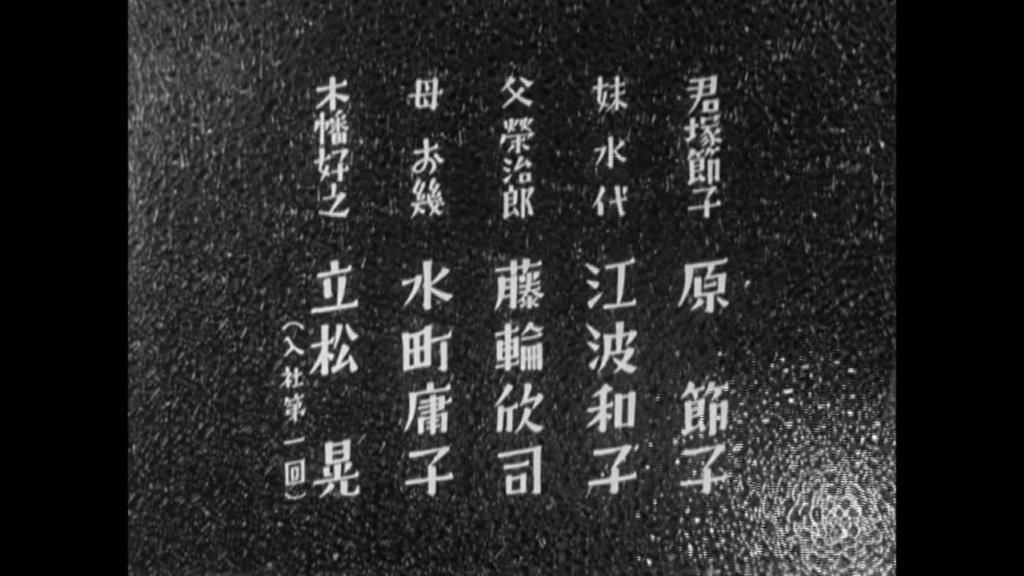 君塚節子 原節子
妹水代 江波和子
父榮治郎 藤輪欣司
母お幾 水町庸子
木幡好之 立松晃
(入社第一回)